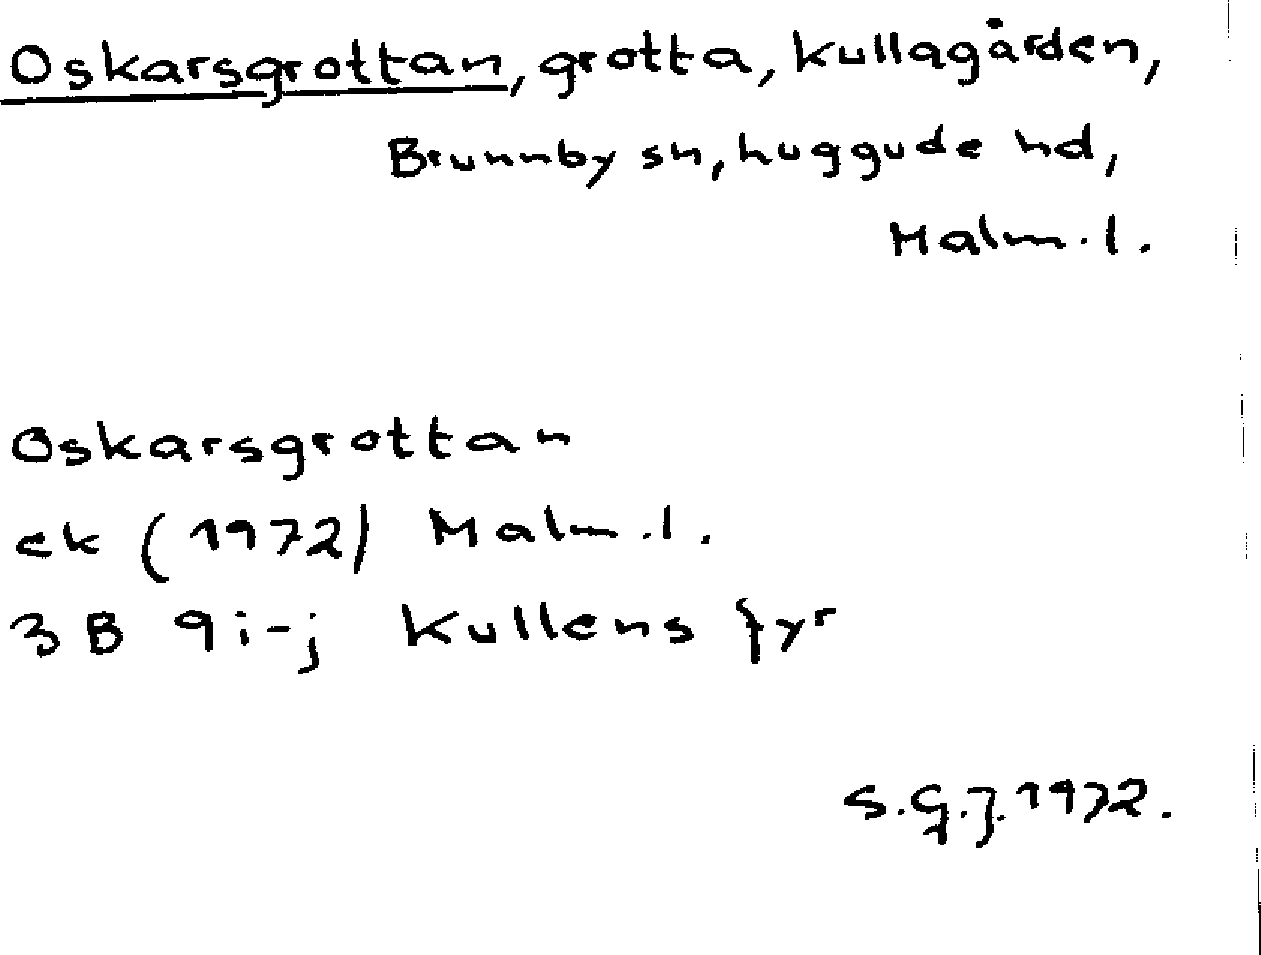 Oskarsgrottan, grotta, kullagården,
Brunnby sn, huggude hd,
Malm.l.
Oskarsgrottan
ek (1972) Malm.l.
3B 9i-j Kullens fyr
S.G.J. 1972.